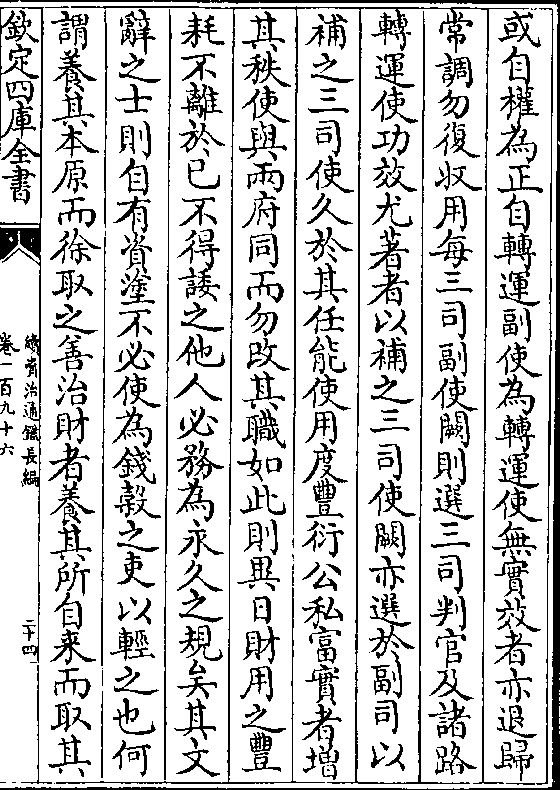 或自權為正自轉運副使為轉運使無實效者亦退歸
常調勿復収用每三司副使闕則選三司判官及諸路
轉運使功效尤著者以補之三司使闕亦選於副司以
補之三司使久於其任能使用度豐衍公私富實者增
其秩使與兩府同而勿改其職如此則異日財用之豐
耗不離於已不得諉之他人必務為永久之規矣其文
辭之士則自有資塗不必使為錢穀之吏以輕之也何
謂養其本原而徐取之善治財者養其所自来而取其
欽定四庫全書
續資治通鑑長編
卷一百九十六
二十四